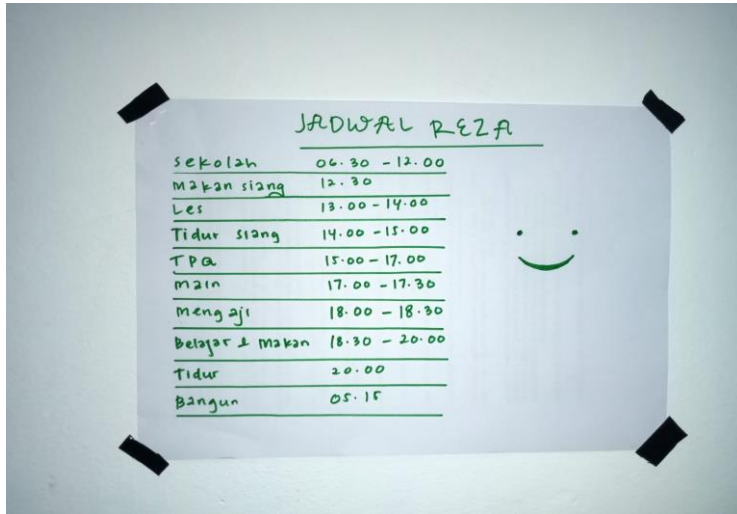 JADWAL REZA
Sekolah 06.30 - 12.00
Makan siang 12.30
Les 13.00 - 14.00
Tidur siang 14.00 - 15.00
TPQ 15.00 - 17.00
Main 17.00 - 17.30
Mengaji 18.00 - 18.30
Belajar & Makan 18.30 - 20.00
Tidur 20.00
Bangun 05.15